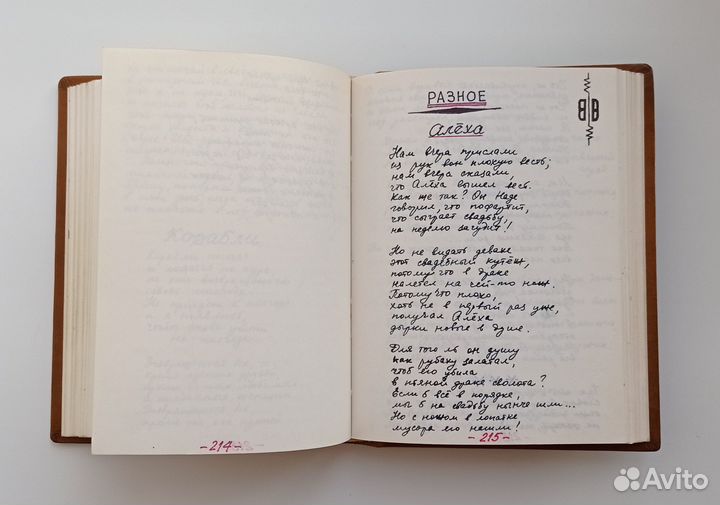 Корабли
- 214 -
РАЗНОЕ
ВВ
Алёха
Нам вчера прислали
из рук вон плохую весть;
нам вчера сказали,
что Алёха вышел весь.
Как же так? Он Наде
говорил, что пофартит,
что сыграет свадьбу,
на неделю загудит!
Но не видать девахе
этот свадебный кутёж,
потому что в драке
налетел на чей-то нож.
Потому что плохо,
хоть не в первый раз уже,
получал Алёха
дырки новые в душе.
Для того ль он душу
как рубаху залатал,
чтоб его убила
в пьяной драке сволота?
Если б всё в порядке,
мы б на свадьбу нынче шли...
Но с ножом в лопатке
мусора его нашли!
- 215 -
Avito